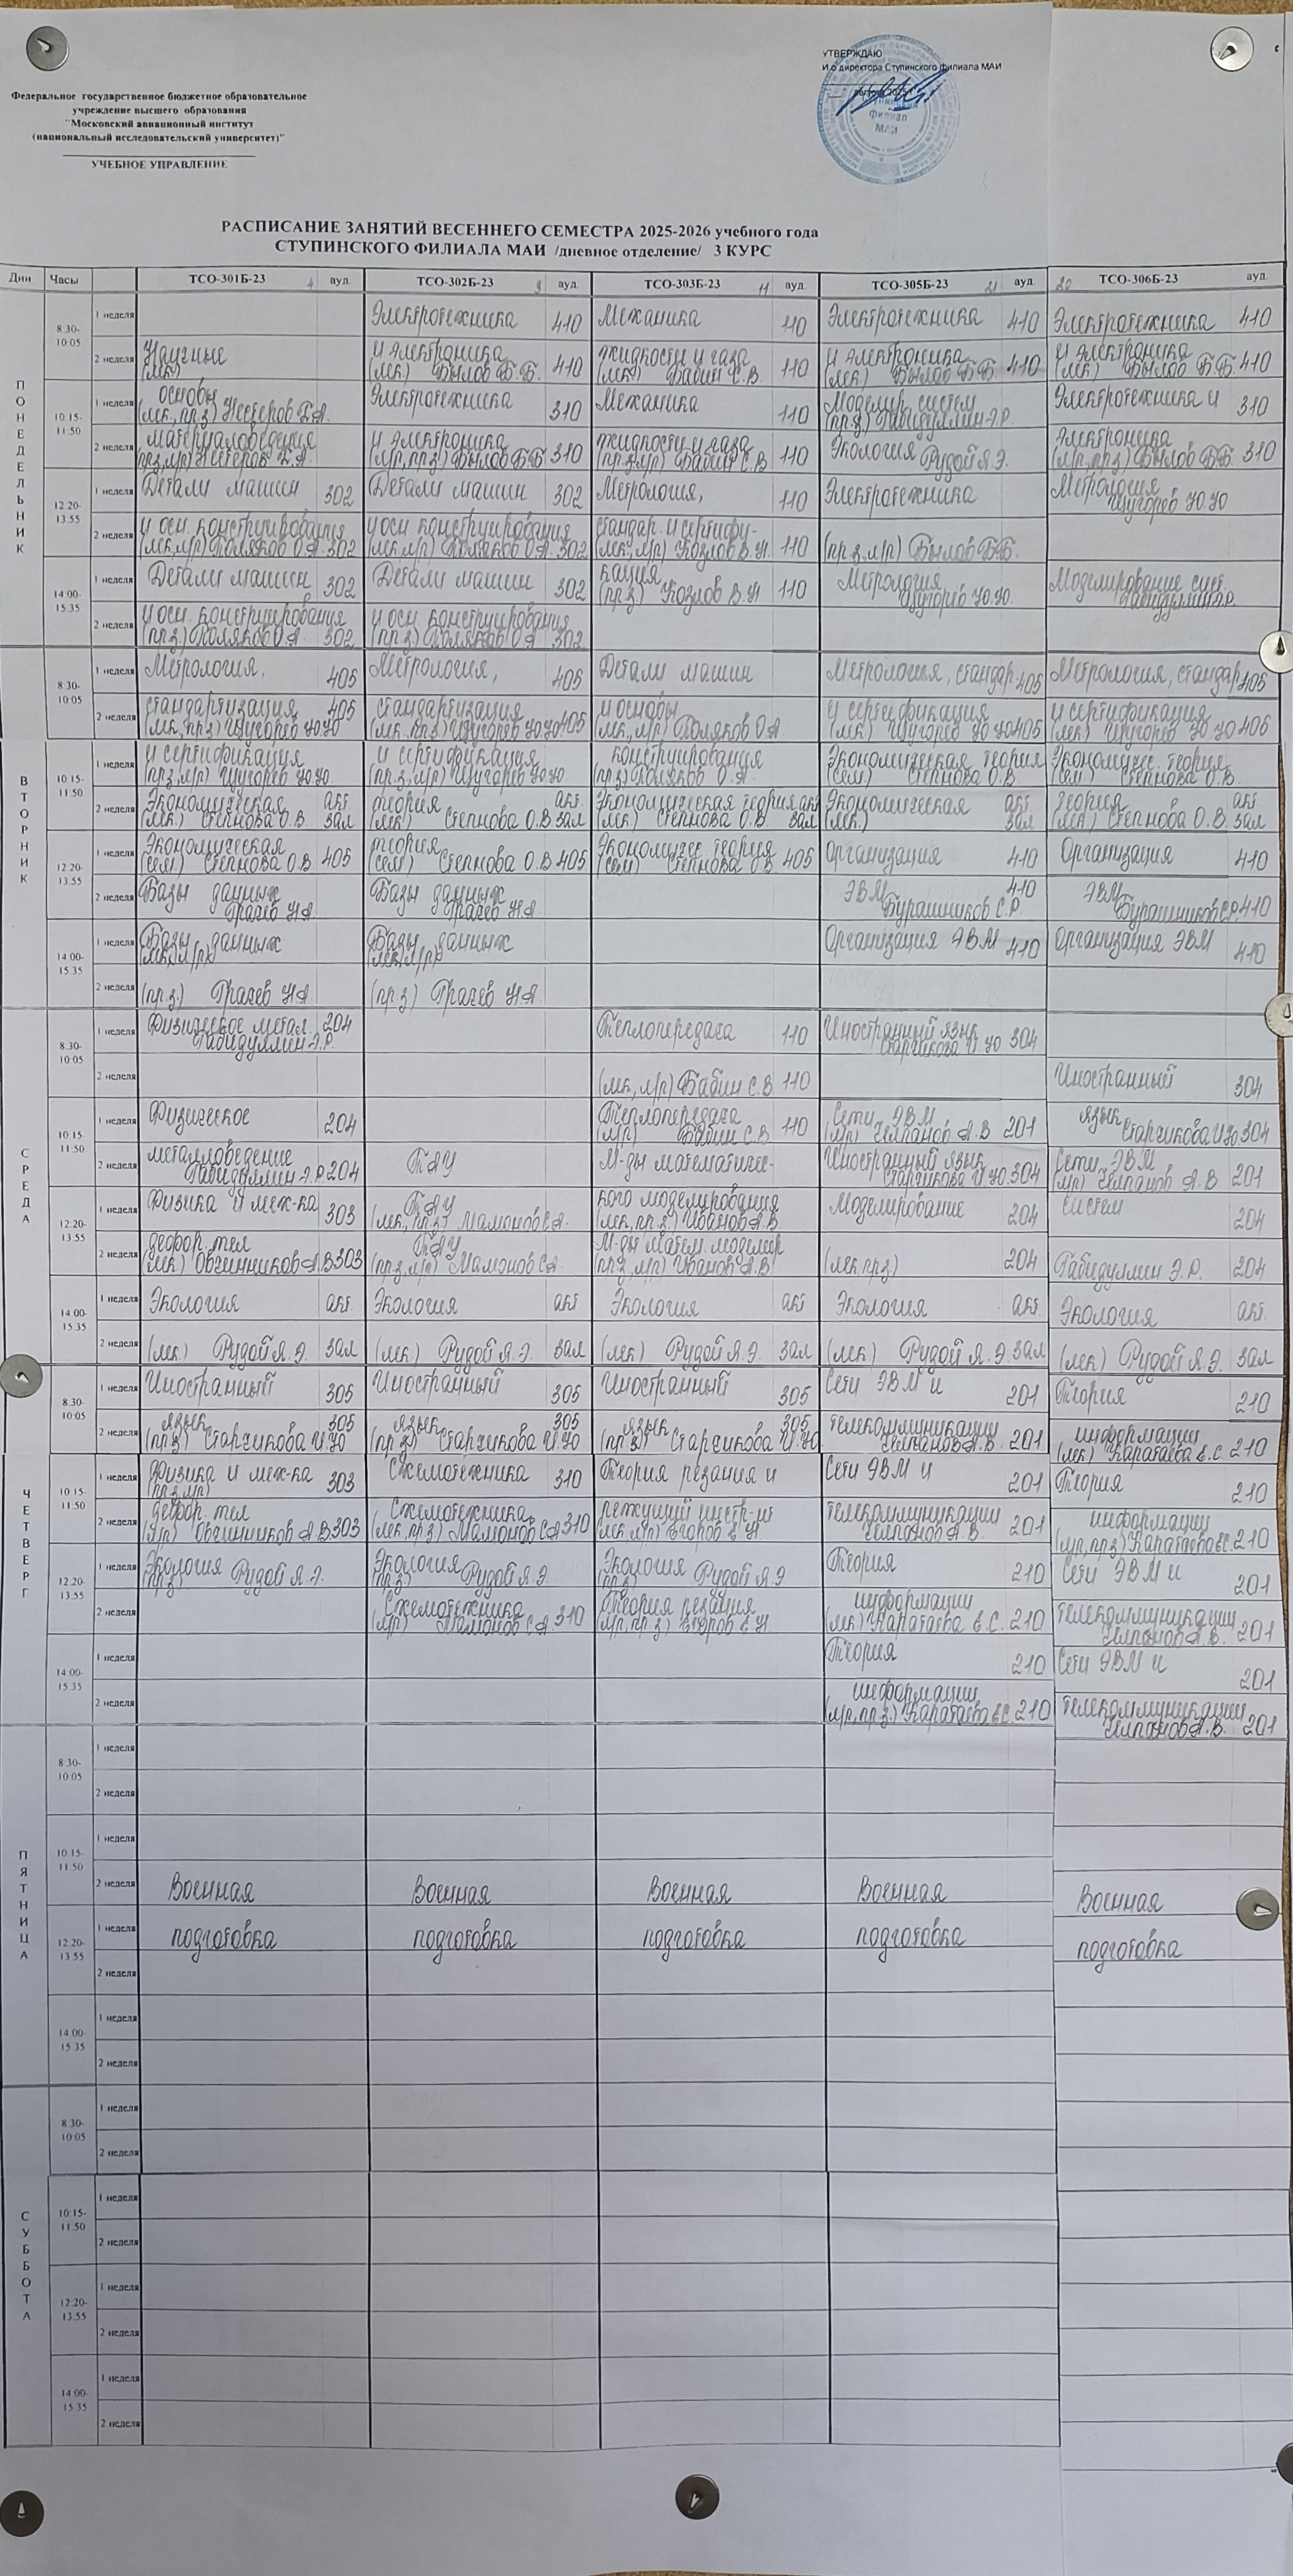 УТВЕРЖДАЮ
И.о директора Ступинского филиала МАИ
филиал
МАИ
Федеральное государственное бюджетное образовательное
учреждение высшего образования
"Московский авиационный институт
(национальный исследовательский университет)"
УЧЕБНОЕ УПРАВЛЕНИЕ
РАСПИСАНИЕ ЗАНЯТИЙ ВЕСЕННЕГО СЕМЕСТРА 2025-2026 учебного года
СТУПИНСКОГО ФИЛИАЛА МАИ /дневное отделение/ 3 КУРС
Дни Часы ТСО-301Б-23 ауд. ТСО-302Б-23 ауд. ТСО-303Б-23 11 ауд. ТСО-305Б-23 ауд. 20 ТСО-306Б-23 ауд.
ПОНЕДЕЛЬНИК
8.30-10.05
1 неделя Электротехника 410 Механика 110 Электротехника 410 Электротехника 410
2 неделя Научные (лек) и электроника (лек) Былов Б.Б. 410 жидкости и газа (лек) Бабин С.В. 110 и электроника (лек) Былов Б.Б. 410 и электроника (лек) Былов Б.Б. 410
10.15-11.50
1 неделя основы (лек, пр.з) Нестеров Электротехника 310 Механика 110 Моделир. систем (пр.з) Габидуллин Э.Р. Электротехника и 310
2 неделя материаловедения пр.з, л/р) Нестеров и электроника (л/р, пр.з) Былов Б.Б. 310 жидкости и газа (пр.з, л/р) Бабин С.В 110 Экология Рудой Я.Э. электроника (л/р, пр.з) Былов Б.Б. 310
12.20-13.55
1 неделя Детали машин 302 Детали машин 302 Метрология, 110 Электротехника Метрология Шугорев Ю.Ю
2 неделя и осн. конструирования (лек, л/р) Поляков О.А. 302 и осн. конструирования (лек, л/р) Поляков О.А. 302 стандар. и сертифи- (лек, л/р) Козлов В.И. 110 (пр.з, л/р) Былов Б.Б.
14.00-15.35
1 неделя Детали машин 302 Детали машин 302 кация (пр.з) Козлов В.И 110 Метрология Шугорев Ю.Ю. Моделирование сист. Габидуллин Э.Р.
2 неделя и осн. конструирования (пр.з.) Поляков О.А. 302 и осн. конструирования (пр.з.) Поляков О.А 302
ВТОРНИК
8.30-10.05
1 неделя Метрология, 405 Метрология, 405 Детали машин Метрология, стандар. 405 Метрология, стандар. 405
2 неделя стандартизация 405 (лек, пр.з) Шугорев Ю.Ю стандартизация (лек, пр.з) Шугорев Ю.Ю 405 и основы (лек, л/р) Поляков О.А и сертификация (лек) Шугорев Ю.Ю 405 и сертификация (лек) Шугорев Ю.Ю 406
10.15-11.50
1 неделя и сертификация (пр.з, л/р) Шугорев Ю.Ю. и сертификация (пр.з, л/р) Шугорев Ю.Ю конструирования (пр.з) Поляков О.А. Экономическая теория (сем) Степнова О.В Экономичес. теория (сем) Степнова О.В.
2 неделя Экономическая (лек) Степнова О.В акт. зал теория (лек) Степнова О.В акт. зал Экономическая теория (лек) Степнова О.В. акт зал Экономическая (лек) акт. зал теория (лек) Степнова О.В акт зал
12.20-13.55
1 неделя Экономическая (сем) Степнова О.В 405 теория (сем) Степнова О.В 405 Экономичес. теория (сем) Степнова О.В. 405 Организация 410 Организация 410
2 неделя Базы данных Базы данных ЭВМ Бурашников С.Р. 410 ЭВМ Бурашников С.Р. 410
14.00-15.35
1 неделя Базы данных (лек, л/р) Базы данных (лек, л/р) Организация ЭВМ 410 Организация ЭВМ 410
2 неделя (пр.з.) (пр.з)
СРЕДА
8.30-10.05
1 неделя Физическое метал. 204 Габидуллин Э.Р. Теплопередача 110 Иностранный язык Старчикова И.Ю 304
2 неделя (лек, л/р) Бабин С.В 110 Иностранный 304
10.15-11.50
1 неделя Физическое 204 Теплопередача (л/р) Бабин С.В. 110 Сети ЭВМ (л/р) А.В 201 язык Старчикова И.Ю 304
2 неделя металловедение Габидуллин Э.Р. 204 ТАУ М-ды математичес- Иностранный язык Старчикова И.Ю. 304 Сети ЭВМ (л/р) А.В. 201
12.20-13.55
1 неделя Физика и мех-ка 303 ТАУ (лек, пр.з) Мамонов С.А. кого моделирования (лек, пр.з) Иванов А.В Моделирование 204 систем 204
2 неделя дефор. тел (лек) Овчинников А.В 303 ТАУ (пр.з, л/р) Мамонов С.А. М-ды матем. моделир (пр.з, л/р) Иванов А.В (лек, пр.з) 204 Габидуллин Э.Р. 204
14.00-15.35
1 неделя Экология акт. Экология акт Экология акт Экология акт. Экология акт.
2 неделя (лек) Рудой Я.Э. зал (лек) Рудой Я.Э. зал (лек) Рудой Я.Э. зал (лек) Рудой Я.Э. зал (лек) Рудой Я.Э. зал
ЧЕТВЕРГ
8.30-10.05
1 неделя Иностранный 305 Иностранный 305 Иностранный 305 Сети ЭВМ и 201 Теория 210
2 неделя язык (пр.з) Старчикова И.Ю 305 язык (пр.з) Старчикова И.Ю 305 язык (пр.з) Старчикова И.Ю. 305 телекоммуникации А.В. 201 информации (лек) Каратаева Е.С. 210
10.15-11.50
1 неделя Физика и мех-ка (пр.з, л/р) 303 Схемотехника 310 Теория резания и Сети ЭВМ и 201 Теория 210
2 неделя дефор. тел (л/р) Овчинников А.В 303 Схемотехника (лек, пр.з) Мамонов С.А 310 режущий инстр-нт лек, л/р) Егоров Е.И телекоммуникации А.В. 201 информации (л/р, пр.з) Каратаева Е.С. 210
12.20-13.55
1 неделя Экология (пр.з) Рудой Я.Э. Экология (пр.з) Рудой Я.Э. Экология (пр.з) Рудой Я.Э Теория 210 Сети ЭВМ и 201
2 неделя Схемотехника (л/р) Мамонов С.А. 310 Теория резания (л/р, пр.з) Егоров Е.И. информации (лек) Каратаева Е.С. 210 телекоммуникации А.В. 201
14.00-15.35
1 неделя Теория 210 Сети ЭВМ и 201
2 неделя информации (л/р, пр.з.) Каратаева Е.С. 210 телекоммуникации А.В. 201
ПЯТНИЦА
8.30-10.05
1 неделя
2 неделя
10.15-11.50
1 неделя
2 неделя Военная Военная Военная Военная Военная
12.20-13.55
1 неделя подготовка подготовка подготовка подготовка подготовка
2 неделя
14.00-15.35
1 неделя
2 неделя
СУББОТА
8.30-10.05
1 неделя
2 неделя
10.15-11.50
1 неделя
2 неделя
12.20-13.55
1 неделя
2 неделя
14.00-15.35
1 неделя
2 неделя